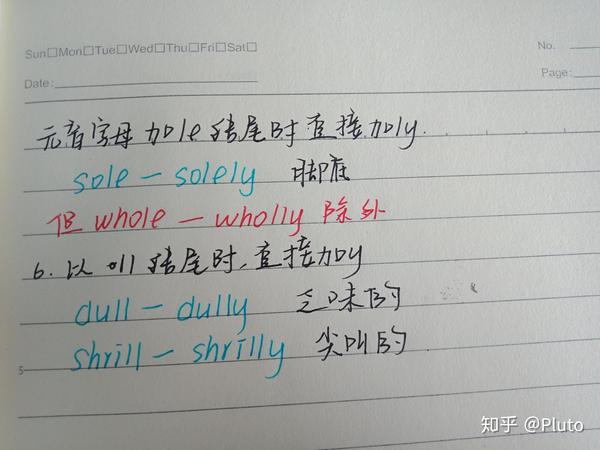 Sun□Mon□Tue□Wed□Thu□Fri□Sat□
No.
Date:
Page:
元音字母加le结尾时直接加ly.
sole — solely 脚底
但 whole — wholly 除外
6. 以 ll 结尾时,直接加y
dull — dully 乏味的
shrill — shrilly 尖叫的
5
知乎 @Pluto